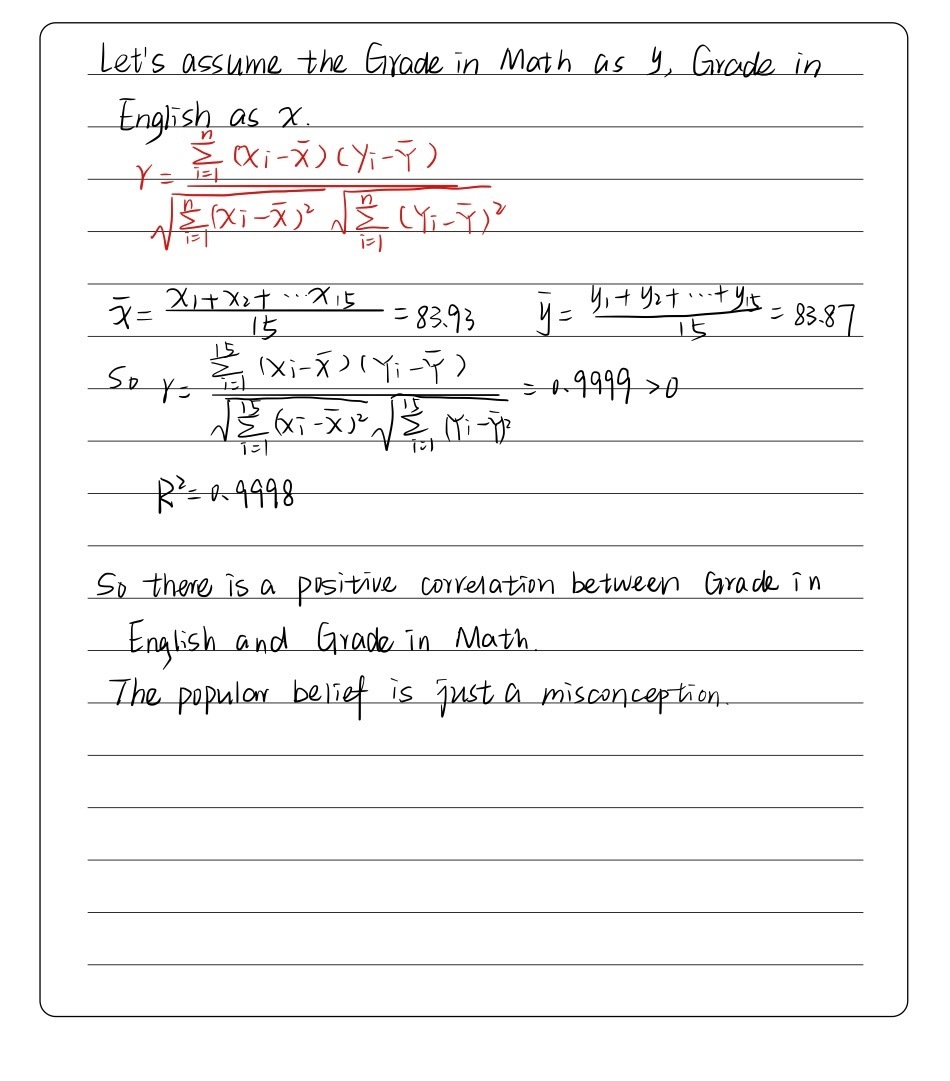 Let's assume the Grade in Math as y, Grade in
English as x.
r = \frac{\sum_{i=1}^{n} (x_i - \bar{x})(y_i - \bar{Y})}{\sqrt{\sum_{i=1}^{n} (x_i - \bar{x})^2} \sqrt{\sum_{i=1}^{n} (Y_i - \bar{Y})^2}}
\bar{x} = \frac{x_1 + x_2 + \cdots x_{15}}{15} = 83.93 \bar{y} = \frac{y_1 + y_2 + \cdots + y_{15}}{15} = 83.87
So r = \frac{\sum_{i=1}^{15} (x_i - \bar{x})(Y_i - \bar{Y})}{\sqrt{\sum_{i=1}^{15} (x_i - \bar{x})^2} \sqrt{\sum_{i=1}^{15} (Y_i - \bar{Y})^2}} = 0.9999 > 0
R² = 0.9998
So there is a positive correlation between Grade in
English and Grade in Math.
The popular belief is just a misconception.